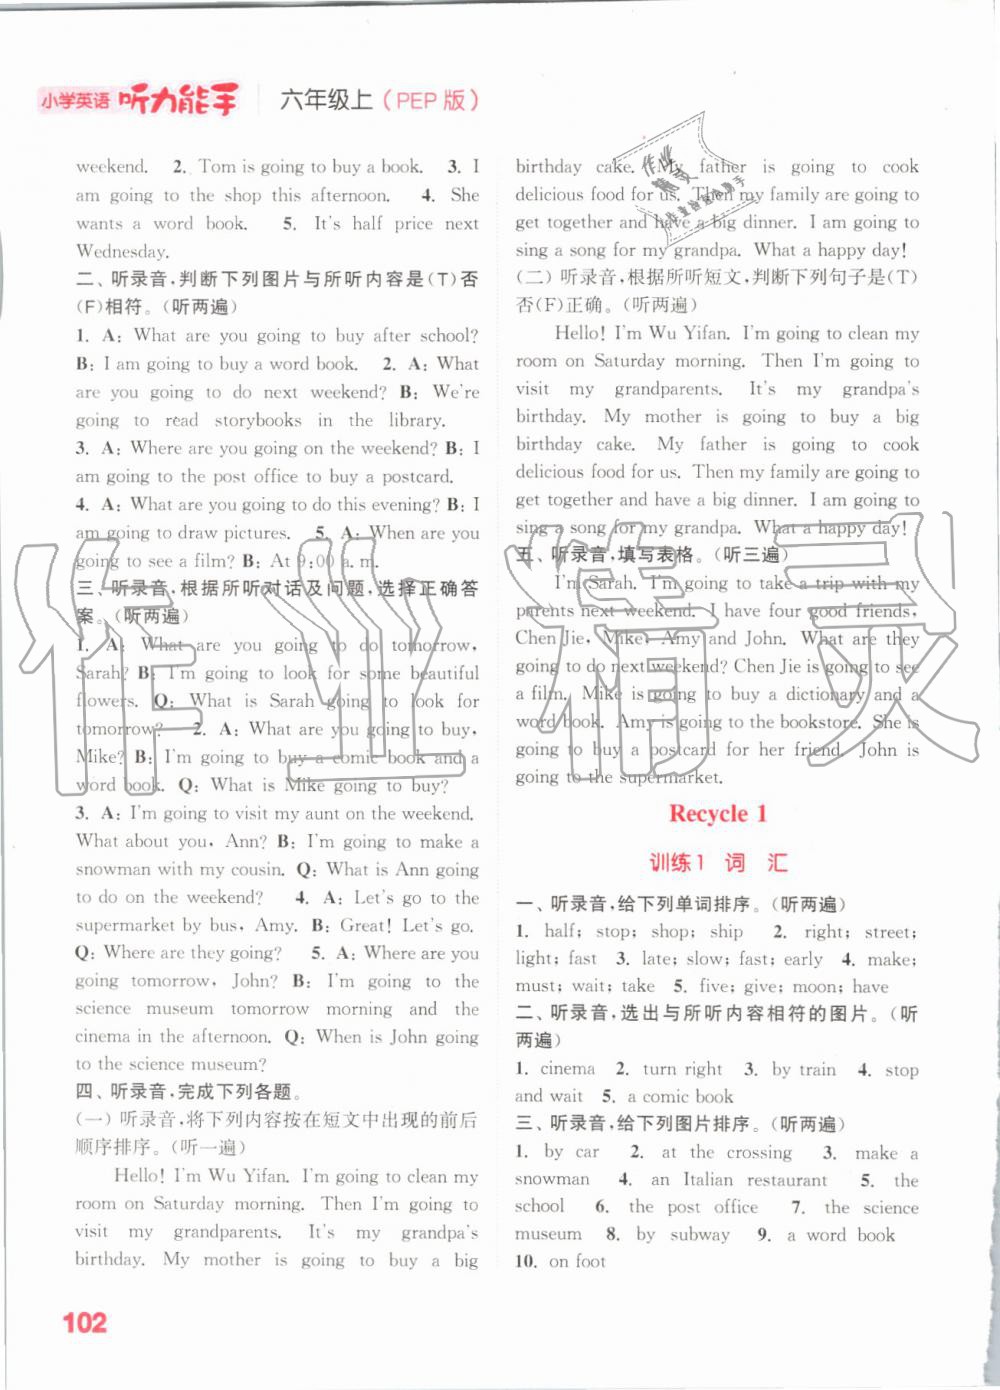 小学英语 听力能手 六年级上（PEP 版）
weekend. 2. Tom is going to buy a book. 3. I
am going to the shop this afternoon. 4. She
wants a word book. 5. It's half price next
Wednesday.
二、听录音,判断下列图片与所听内容是(T)否
(F)相符。(听两遍)
1. A: What are you going to buy after school?
B: I am going to buy a word book. 2. A: What
are you going to do next weekend? B: We're
going to read storybooks in the library.
3. A: Where are you going on the weekend? B: I
am going to the post office to buy a postcard.
4. A: What are you going to do this evening? B: I
am going to draw pictures. 5. A: When are you
going to see a film? B: At 9:00 a. m.
三、听录音,根据所听对话及问题,选择正确答
案。(听两遍)
1. A: What are you going to do tomorrow,
Sarah? B: I'm going to look for some beautiful
flowers. Q: What is Sarah going to look for
tomorrow? 2. A: What are you going to buy,
Mike? B: I'm going to buy a comic book and a
word book. Q: What is Mike going to buy?
3. A: I'm going to visit my aunt on the weekend.
What about you, Ann? B: I'm going to make a
snowman with my cousin. Q: What is Ann going
to do on the weekend? 4. A: Let's go to the
supermarket by bus, Amy. B: Great! Let's go.
Q: Where are they going? 5. A: Where are you
going tomorrow, John? B: I'm going to the
science museum tomorrow morning and the
cinema in the afternoon. Q: When is John going
to the science museum?
四、听录音,完成下列各题。
(一)听录音,将下列内容按在短文中出现的前后
顺序排序。(听一遍)
Hello! I'm Wu Yifan. I'm going to clean my
room on Saturday morning. Then I'm going to
visit my grandparents. It's my grandpa's
birthday. My mother is going to buy a big
birthday cake. My father is going to cook
delicious food for us. Then my family are going to
get together and have a big dinner. I am going to
sing a song for my grandpa. What a happy day!
(二)听录音,根据所听短文,判断下列句子是(T)
否(F)正确。(听两遍)
Hello! I'm Wu Yifan. I'm going to clean my
room on Saturday morning. Then I'm going to
visit my grandparents. It's my grandpa's
birthday. My mother is going to buy a big
birthday cake. My father is going to cook
delicious food for us. Then my family are going to
get together and have a big dinner. I am going to
sing a song for my grandpa. What a happy day!
五、听录音,填写表格。(听三遍)
I'm Sarah. I'm going to take a trip with my
parents next weekend. I have four good friends,
Chen Jie, Mike, Amy and John. What are they
going to do next weekend? Chen Jie is going to see
a film. Mike is going to buy a dictionary and a
word book. Amy is going to the bookstore. She is
going to buy a postcard for her friend. John is
going to the supermarket.
Recycle 1
训练1 词 汇
一、听录音,给下列单词排序。(听两遍)
1. half; stop; shop; ship 2. right; street;
light; fast 3. late; slow; fast; early 4. make;
must; wait; take 5. five; give; moon; have
二、听录音,选出与所听内容相符的图片。(听
两遍)
1. cinema 2. turn right 3. by train 4. stop
and wait 5. a comic book
三、听录音,给下列图片排序。(听两遍)
1. by car 2. at the crossing 3. make a
snowman 4. an Italian restaurant 5. the
school 6. the post office 7. the science
museum 8. by subway 9. a word book
10. on foot
102
作业精灵